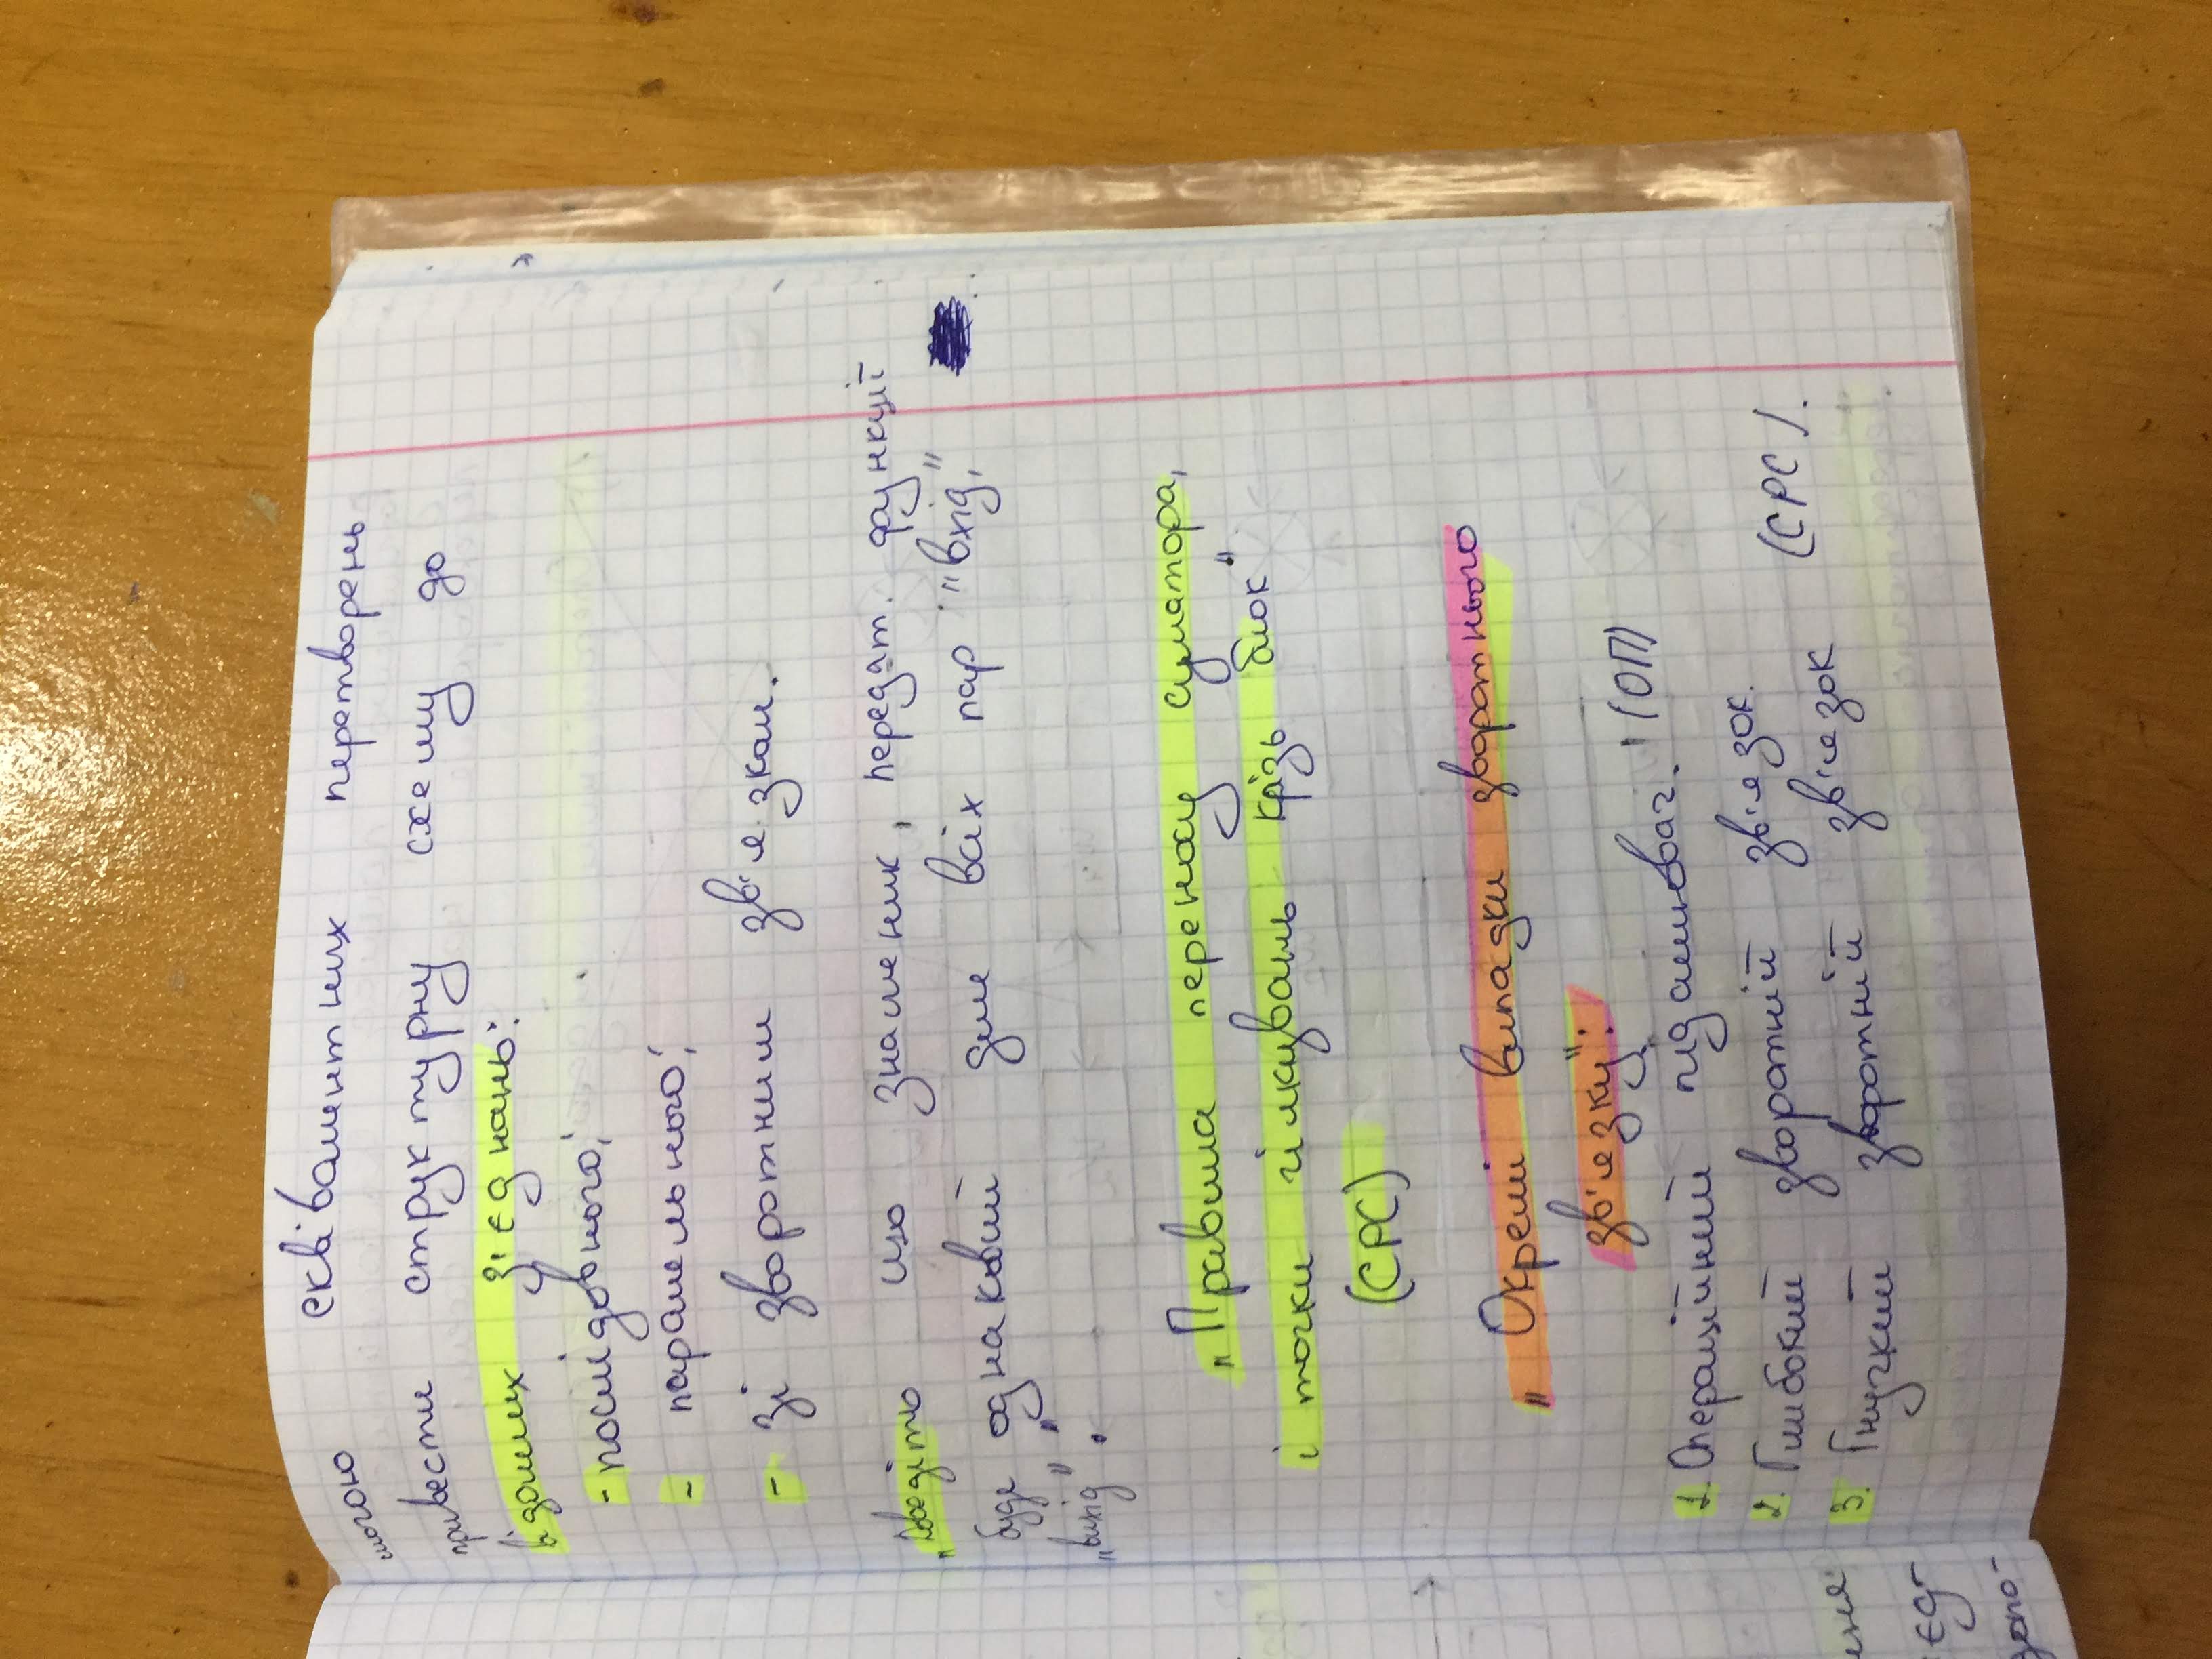 могою еквівалентних перетворень
привести структурну схему до
відомих з'єднань:
- послідовного;
- паралельного;
- зі зворотним зв'язком.
„Доведіть що знаменик, передат. функції
буде однаковий для всіх пар "вхід,"
„вихід" ."
„Правила переносу суматора,
і точки гілкувань крізь блок"
(СРС)
„Окремі випадки зворотнього
зв'язку":
1. Операційний підсилювач. (ОП)
2. Глибокий зворотній зв'язок.
3. Гнучкий зворотній зв'язок (СРС).
єд-
допо-